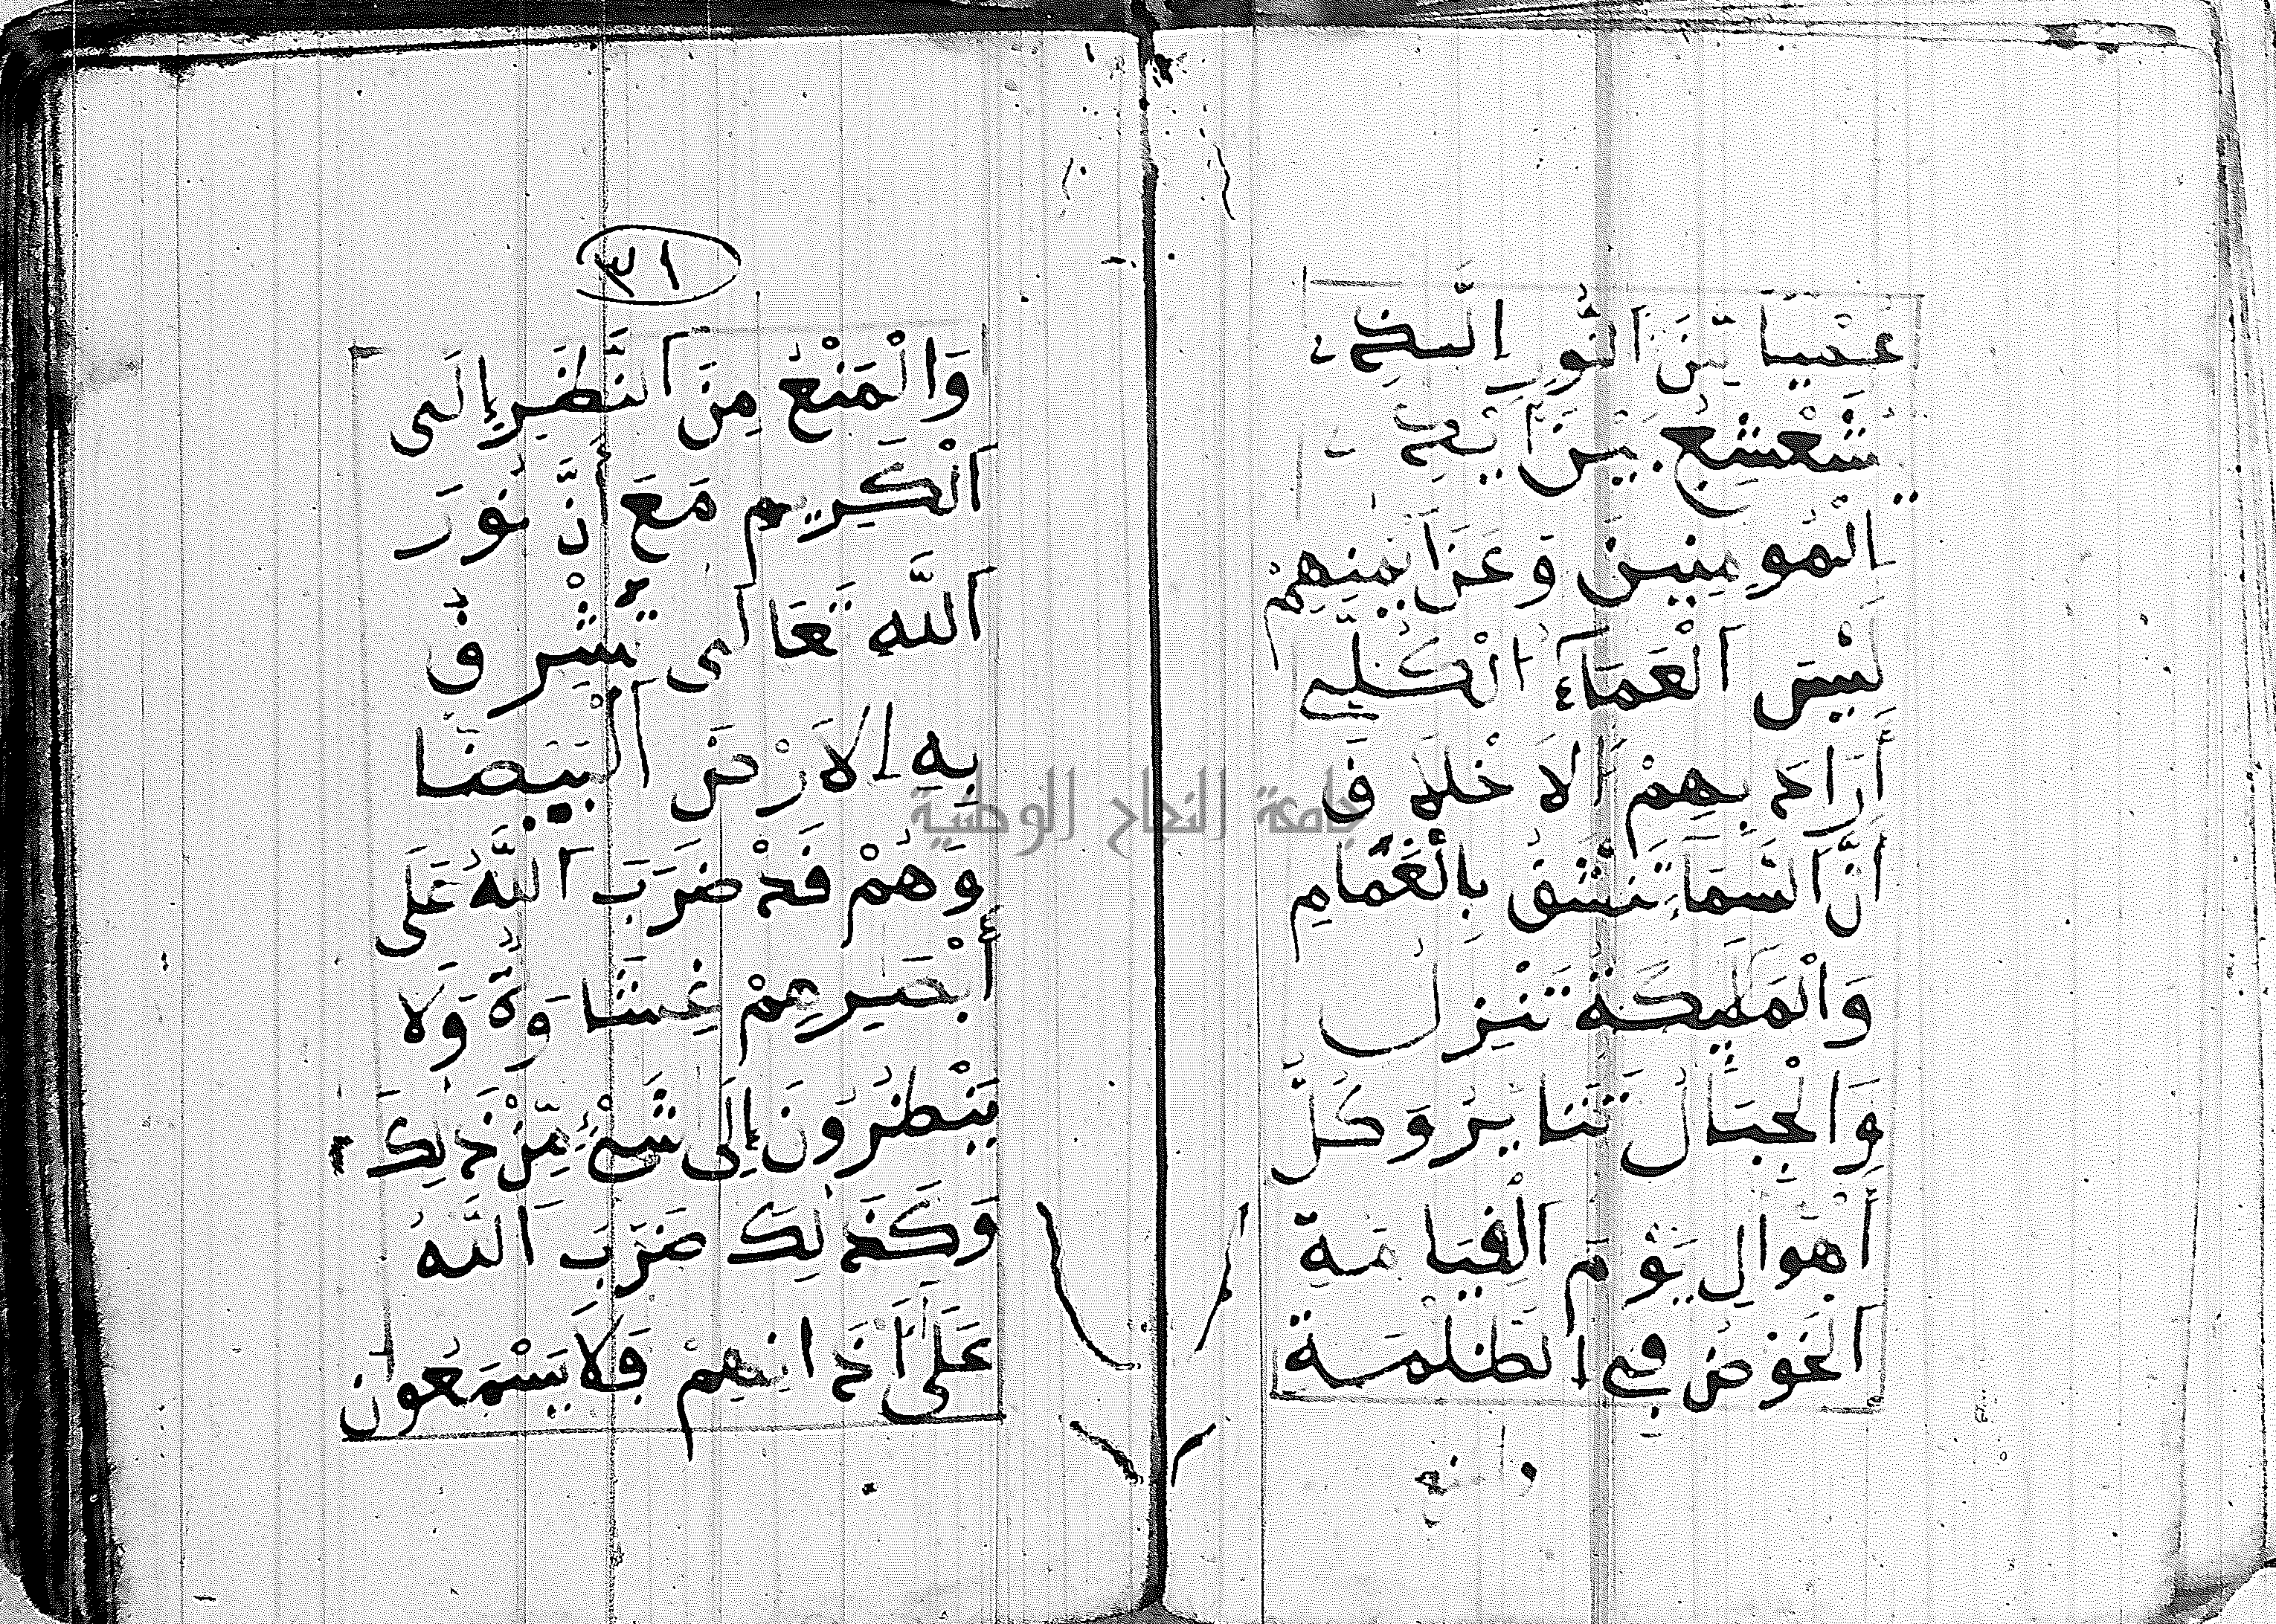 عميا من النُّورِ الَّذي
يشعْشِعُ بَيْنَ أَيْدي
المُومِنِينَ وَعَنَ ايْمَنِهِمْ
لَيْسَ الْعَمَاءَ الْكُلِّي
أَرَادَ بِهِمْ الاَ خَلاَ قَ
أَنَّ السَّمَاءَ تَنشَقُّ بِالْغَمَامِ
وَالْمَلَيِكَةُ تَنْزِلُ
وَالْجِبَالُ تَتَنَا يَرُ وَكُلُّ
أَهْوَالِ يَوْمِ الْقِيَامَةِ
الْخَوْضُ فِي الظُّلْمَةِ
والمنع
٣١
وَالْمَنْعُ مِنَ النَّظَرِ إِلَى
الْكَرِيمِ مَعَ أَنَّ نُورَ
اللَّهِ تَعَالَى تُشْرِقُ
بِهِ الاَرْضُ الْبَيْضَا
وَهُمْ قَدْ ضَرَبَ اللَّهُ عَلَى
أَبْصَرِهِمْ غِشَاوَةً وَلا
يَنْظُرُونَ إِلَى شَيْءٍ مِّنْ ذَلِكَ
وَكَذَلِكَ ضَرَبَ اللَّهُ
عَلَى آذَانِهِمْ فَلاَ يَسْمَعُونَ
جامعة النجاح الوطنية